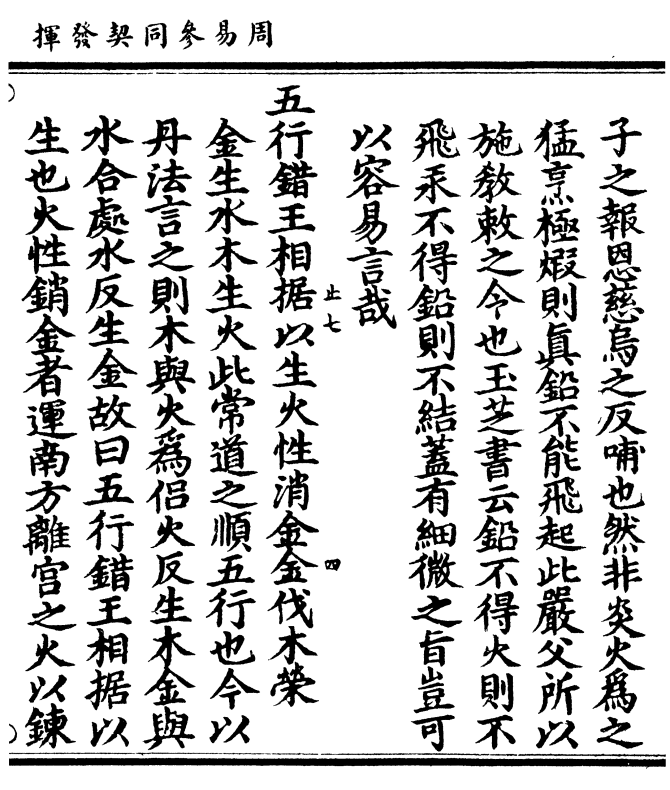 周易參同契發揮
子之報恩慈烏之反哺也然非炎火爲之
猛烹極煆則眞鉛不能飛起此嚴父所以
施教敕之令也玉芝書云鉛不得火則不
飛汞不得鉛則不結蓋有細微之旨豈可
以容易言哉
止七
四
五行錯王相据以生火性消金金伐木榮
金生水木生火此常道之順五行也今以
丹法言之則木與火爲侣火反生木金與
水合處水反生金故曰五行錯王相据以
生也火性銷金者運南方離宮之火以鍊